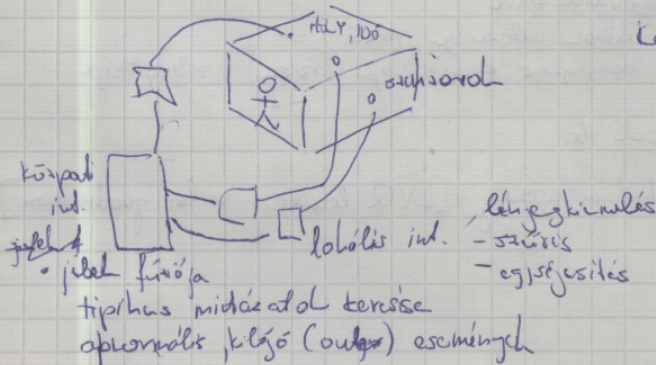 HELY, IDŐ
szenzorok
központi
int.
lokális int.
lényegkiemelés
- szűrés
- egységesítés
• jelek fúziója
tipikus mintázatok keresése
abnormális, kilógó (outlier) események